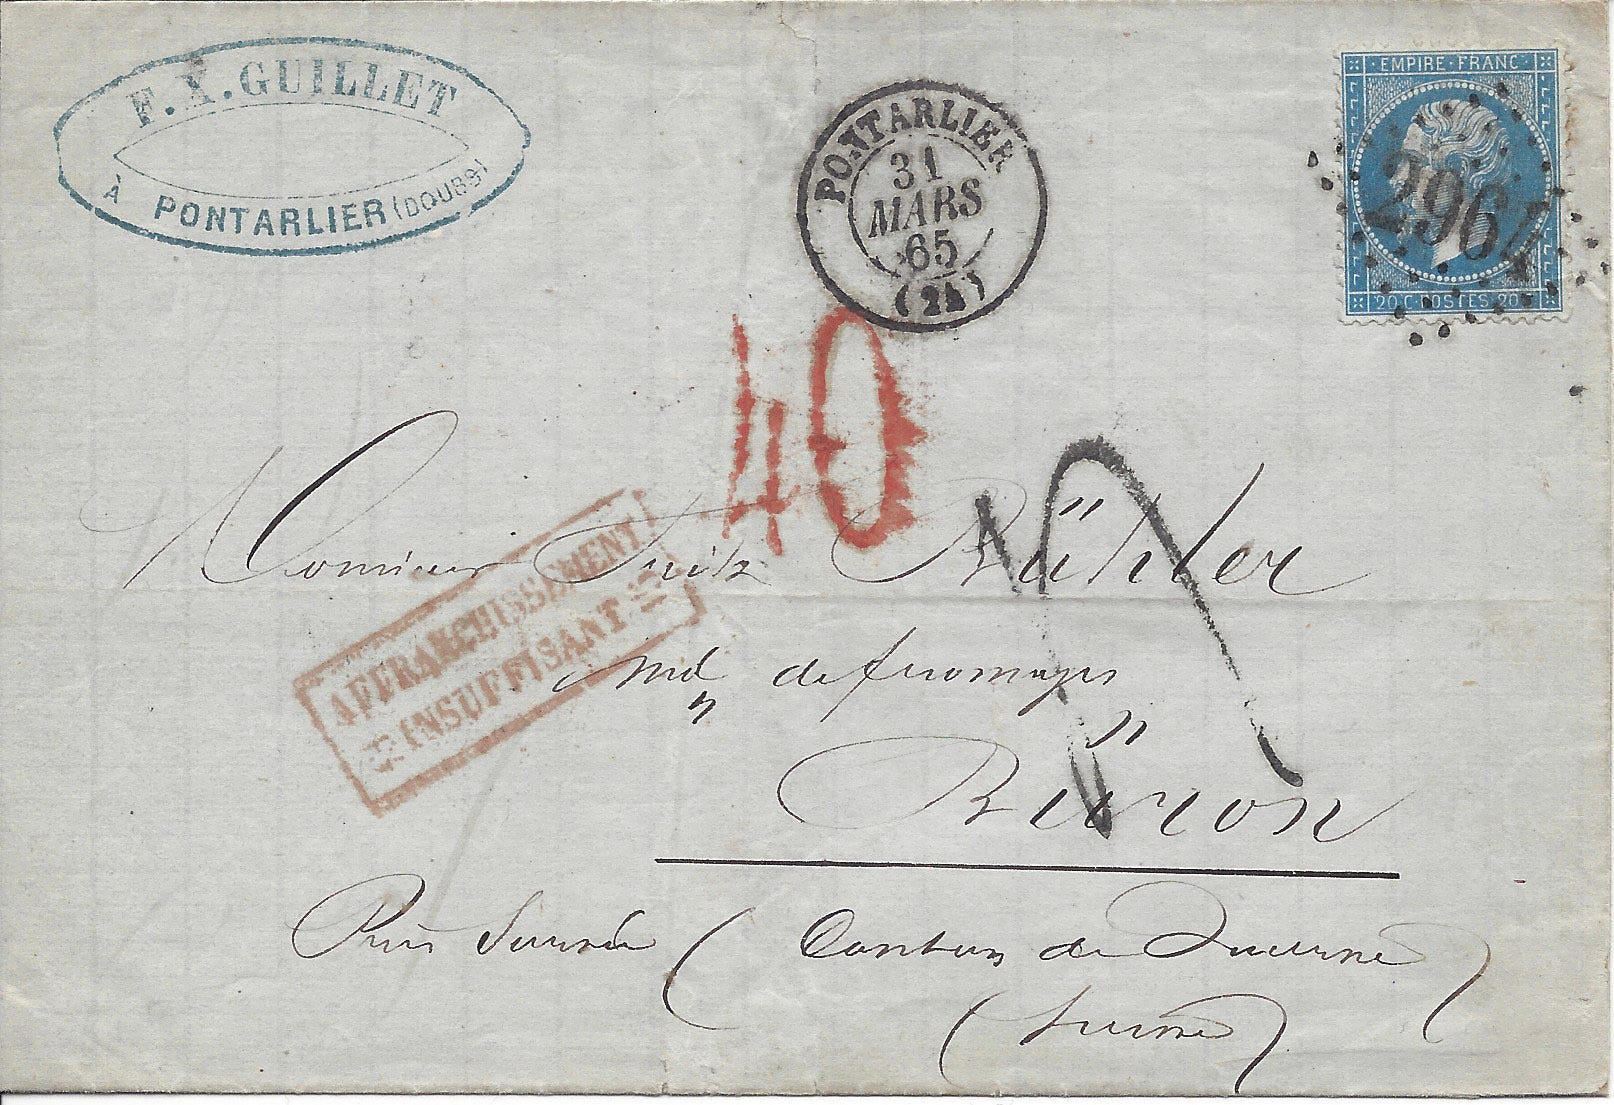 F. X. GUILLET
À PONTARLIER (DOUBS)
PONTARLIER
31
MARS
65
(24)
EMPIRE FRANC
2964
20 C POSTES 20 C
40
AFFRANCHISSEMENT
INSUFFISANT
Monsieur Fritz Bühler
Md de fromages
Büron
Près Sursée (Canton de Lucerne)
(Suisse)